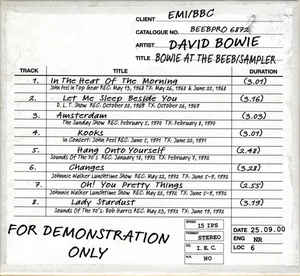 CLIENT EMI/BBC
CATALOGUE NO. BEEBPRO 6872
ARTIST: DAVID BOWIE
TITLE: BOWIE AT THE BEEB/SAMPLER
TRACK TITLE TITLE DURATION
1. In The Heat Of The Morning (3.01)
John Peel in Top Gear REC: May 13, 1968 TX: May 26, 1968 & June 30, 1968
2. Let Me Sleep Beside You (3.16)
D. L. T. Show REC: October 20, 1969 TX: October 26, 1969
3. Amsterdam (3.03)
The Sunday Show REC: February 5, 1970 TX: February 8, 1970
4. Kooks (3.01)
In Concert: John Peel REC: June 3, 1971 TX: June 20, 1971
5. Hang Onto Yourself (2.48)
Sounds Of The 70's REC: January 18, 1972 TX: February 7, 1972
6. Changes (3.28)
Johnnie Walker Lunchtime Show REC: May 22, 1972 TX: June 5-9, 1972
7. Oh! You Pretty Things (2.55)
Johnnie Walker Lunchtime Show REC: May 22, 1972 TX: June 5-9, 1972
8. Lady Stardust (3.19)
Sounds Of The 70's: Bob Harris REC: May 23, 1972 TX: June 19, 1972
FOR DEMONSTRATION
ONLY
SPEED 15 IPS
FORMAT STEREO
EQ I.E.C.
NO
DATE 25.09.00
ENG NR
LOC 6